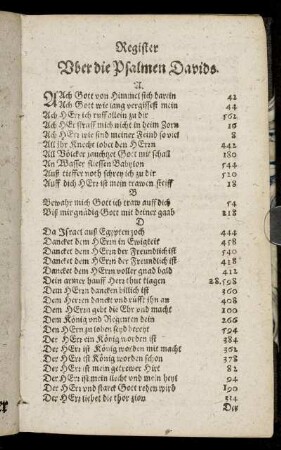 Register
Vber die Psalmen Davids.
A.
Ach Gott von Himmel sich darein 42
Ach Gott wie lang vergissest mein 44
Ach HErr ich ruff allein zu dir 502
Ach HErr straff mich nicht in deim Zorn 16
Ach HErr wie sind meiner Feind so viel 8
All jhr Knecht lobet den HErrn 442
All Völcker jauchzet Gott mit schall 180
An Wasser fliessen Babylon 544
Auß tieffer noth schrey ich zu dir 520
Auff dich HErr ist mein trawen steiff 18
B
Bewahr mich Gott ich traw auff dich 54
Biß mir gnädig Gott mit deiner gaab 218
D
Da Israel auß Egypten zoch 444
Dancket dem HErrn in Ewigkeit 458
Dancket dem HErrn der Freundlich ist 540
Dancket dem HErrn der Freundlich ist 418
Dancket dem HErrn voller gnad bald 412
Dein armer hauff Herr thut klagen 28.598
Dem HErrn dancken billich ist 360
Dem Herren danckt und rüfft jhn an 408
Dem HErrn gebt die Ehr und macht 100
Dem König und Regenten dein 266
Den HErrn zu loben seyd bereyt 594
Der HErr ein König worden ist 384
Der HErr ist König worden mit macht 362
Der HErr ist König worden schon 378
Der HErr ist mein getrewer Hirt 82
Der HErr ist mein liecht und mein heyl 94
Der HErr und starck Gott reden wird 190
Der HErr liebet die thor zion 314
Der